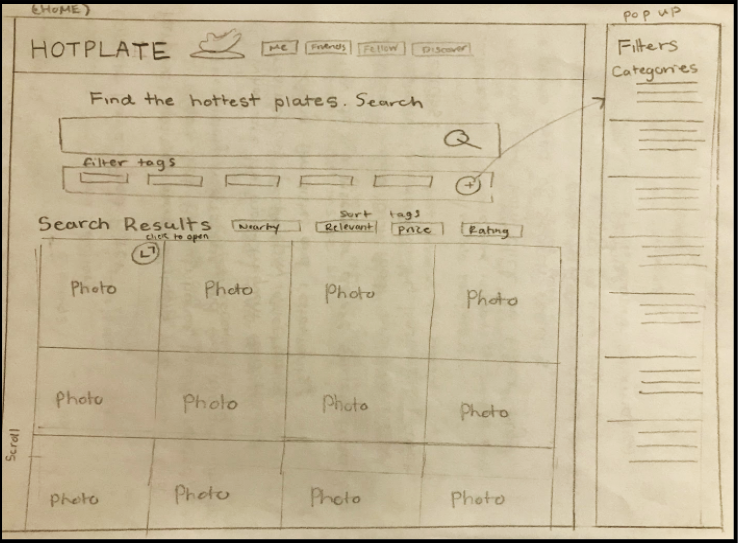 {HOME}
HOTPLATE
Me Friends Fellow Discover
Find the hottest plates. Search
filter tags
+
Search Results
click to open
Sort tags
Nearby Relevant Price Rating
Photo Photo Photo Photo
Photo Photo Photo Photo
Photo Photo Photo Photo
Scroll
POP UP
Filters
Categories